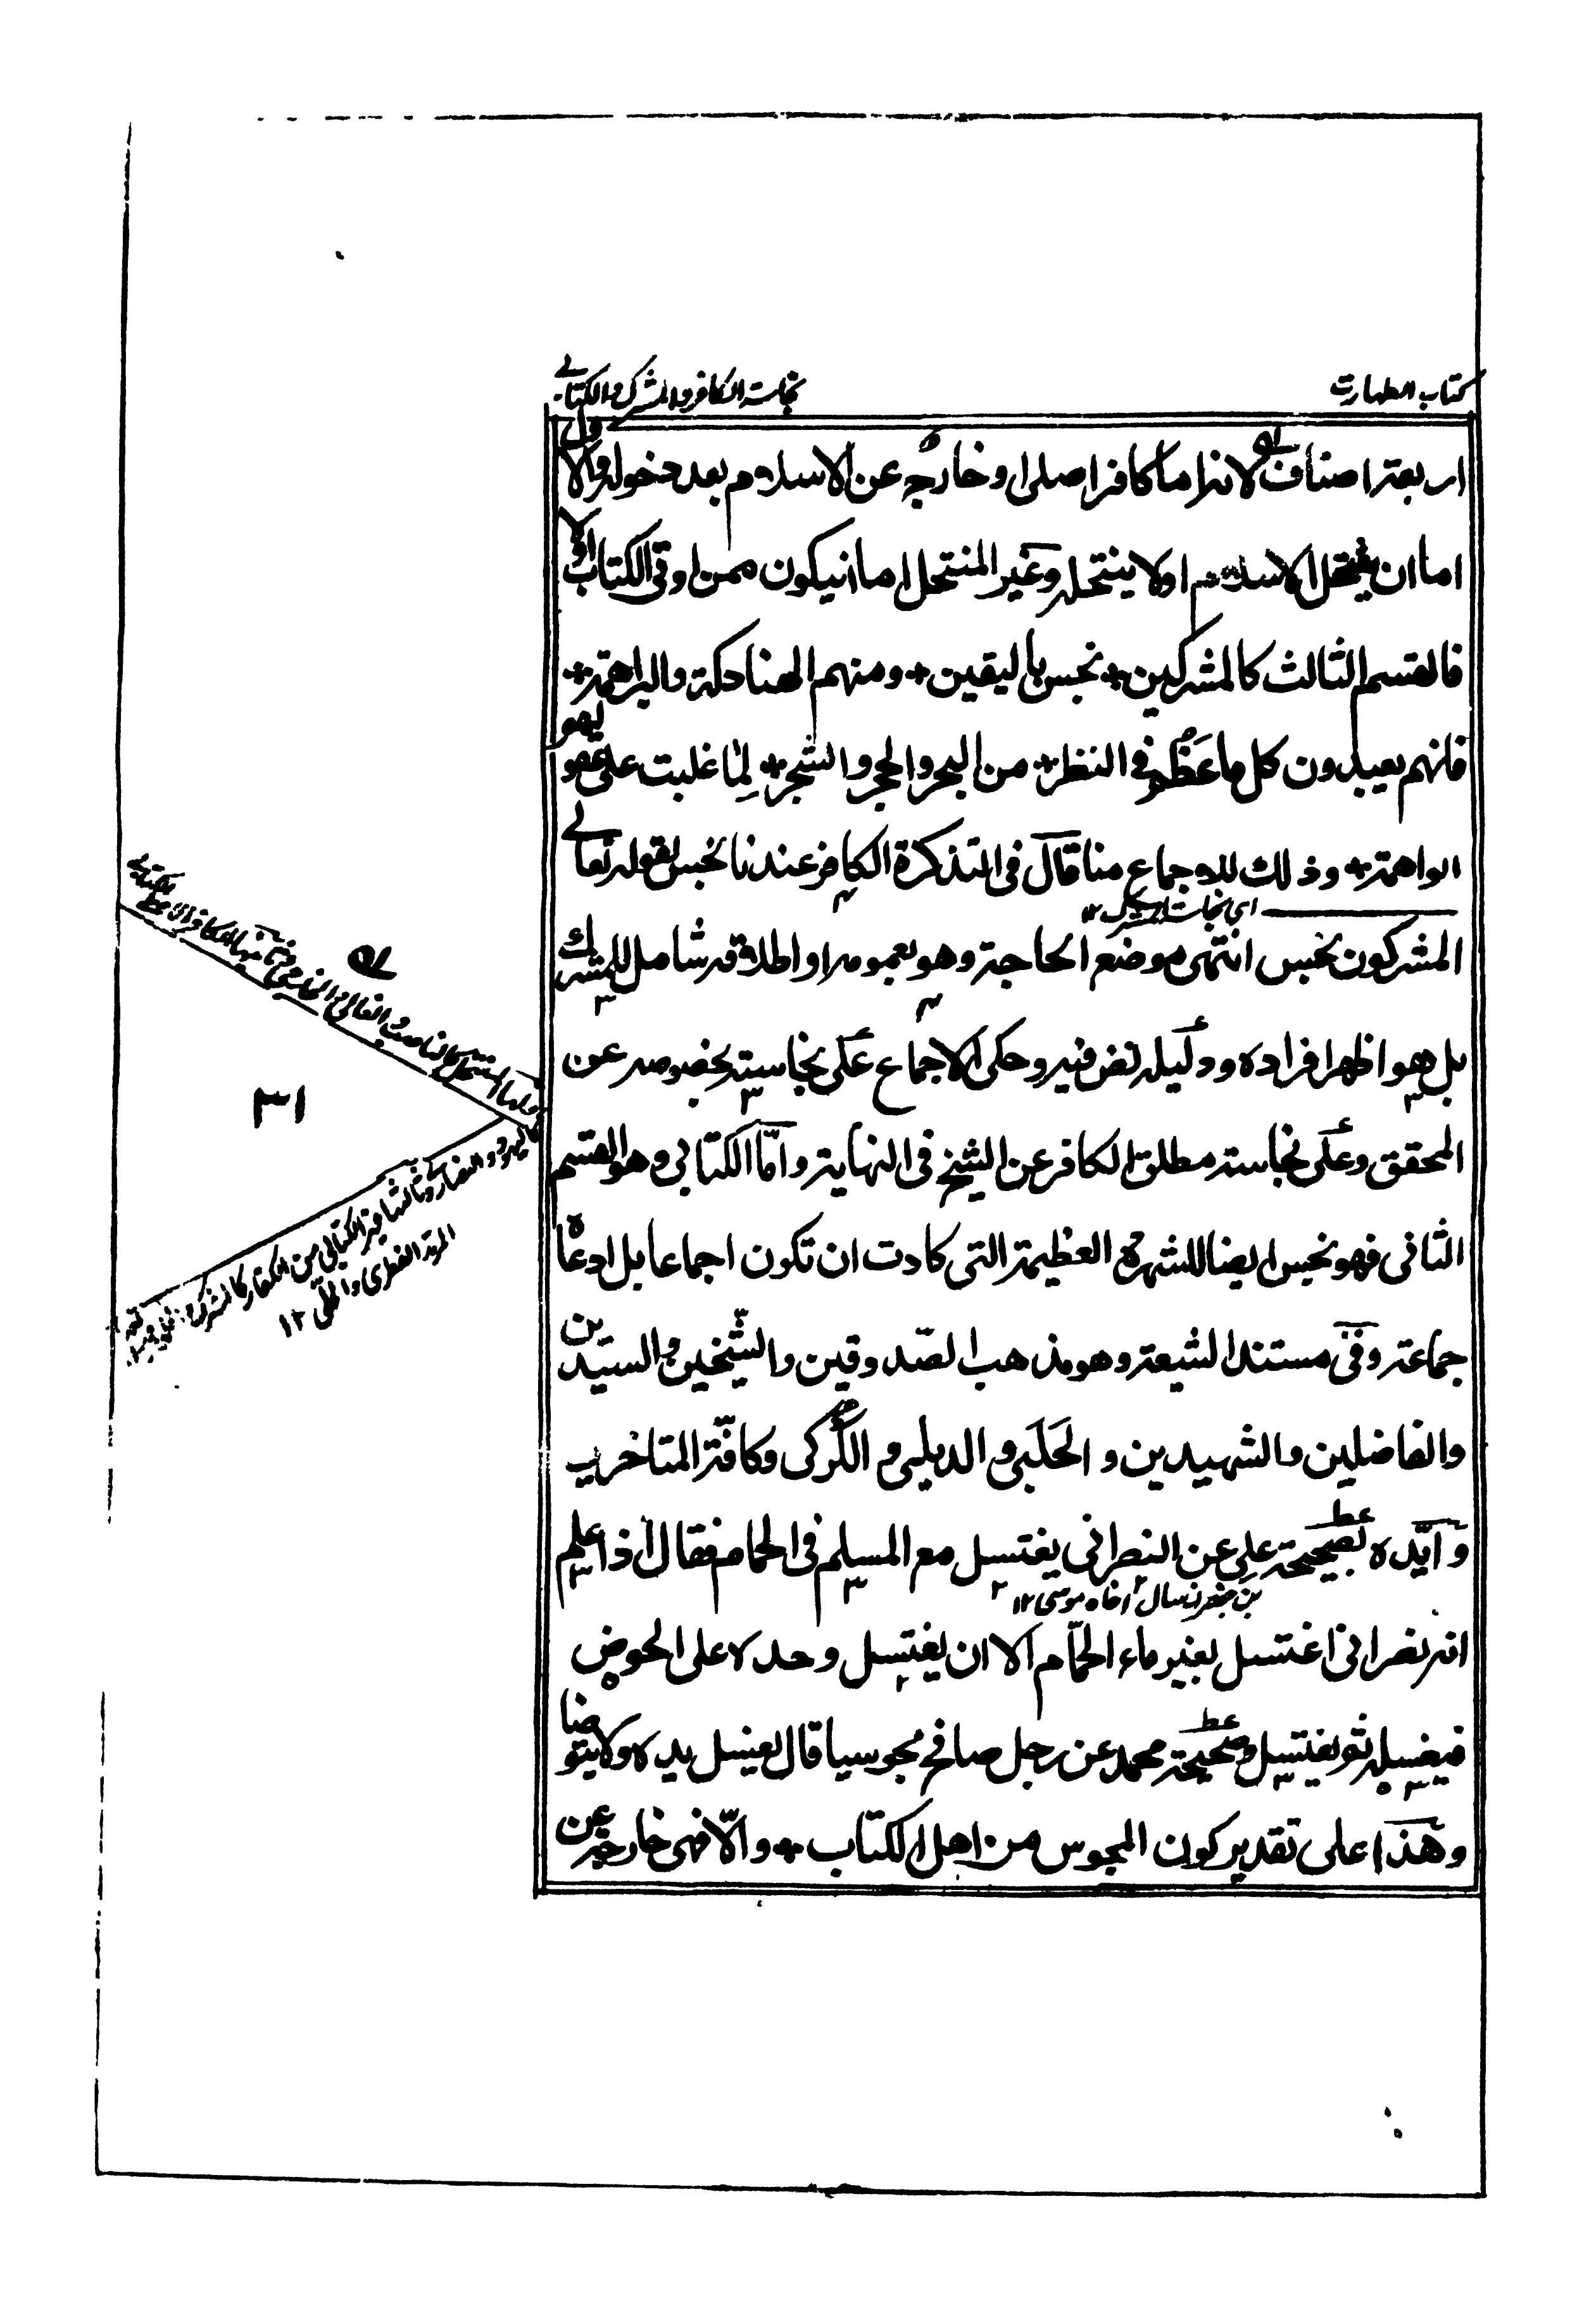 كتاب الطهارت
نجاسة الكافر والمشرك والكتابي
اربعة اصناف لانه اما كافر اصلى او خارج عن الاسلام بعد دخوله والاول
اما ان ينتحل الاسلام اولا ينتحله وغير المنتحل اما انيكون ممن اوتى الكتاب اولا
فالقسم الثالث كالمشركين نجس باليقين ومنهم الهنادكة والبراهمة
فانهم يعبدون كل ما عَظُم فى النظر من البحر والحجر والشجر لِمَا غلبت على عقولهم
الواهمة وذلك للاجماع منا قال فى التذكرة الكافر عندنا نجس لقوله تعالى
اى نجاسة المشرك ١٢
المشركون نجس انتهى موضع الحاجة وهو بعمومه او اطلاقه شامل للمشرك
بل هو اظهر افراده ودليله نص فيه وحكى الاجماع على نجاسته بخصوصه عن
المحقق وعلى نجاسته مطلق الكافر عن الشيخ فى النهاية واما الكتابى وهو القسم
الثانى فهو نجس ايضا للشهرة العظيمة التى كادت ان تكون اجماعا بل ادعاه
جماعة وفى مستند الشيعة وهو مذهب الصدوقين والشيخين والسيدين
والفاضلين والشهيدين و الحَلَبى و الديلمى و الكَرَكى وكافة المتاخرين
وايّده بصحيحة على عن النصرانى يغتسل مع المسلم فى الحمام فقال اذا علم
بن جعفر انه سال اخاه موسى ١٢
انه نصرانى اغتسل بغير ماء الحمّام الا ان يغتسل وحده على الحوض
فيغسله ثم يغتسل وصحيحة محمد عن رجل صافح مجوسيا قال يغسل يده ولا يتوضا
وهذا على تقدير كون المجوس من اهل الكتاب والّا فهى خارجة عن
٣١
كاليهود والنصارى وثالثها غير الكتابى من الكفار كالمشرك
المرتد الفطرى والملى ١٢